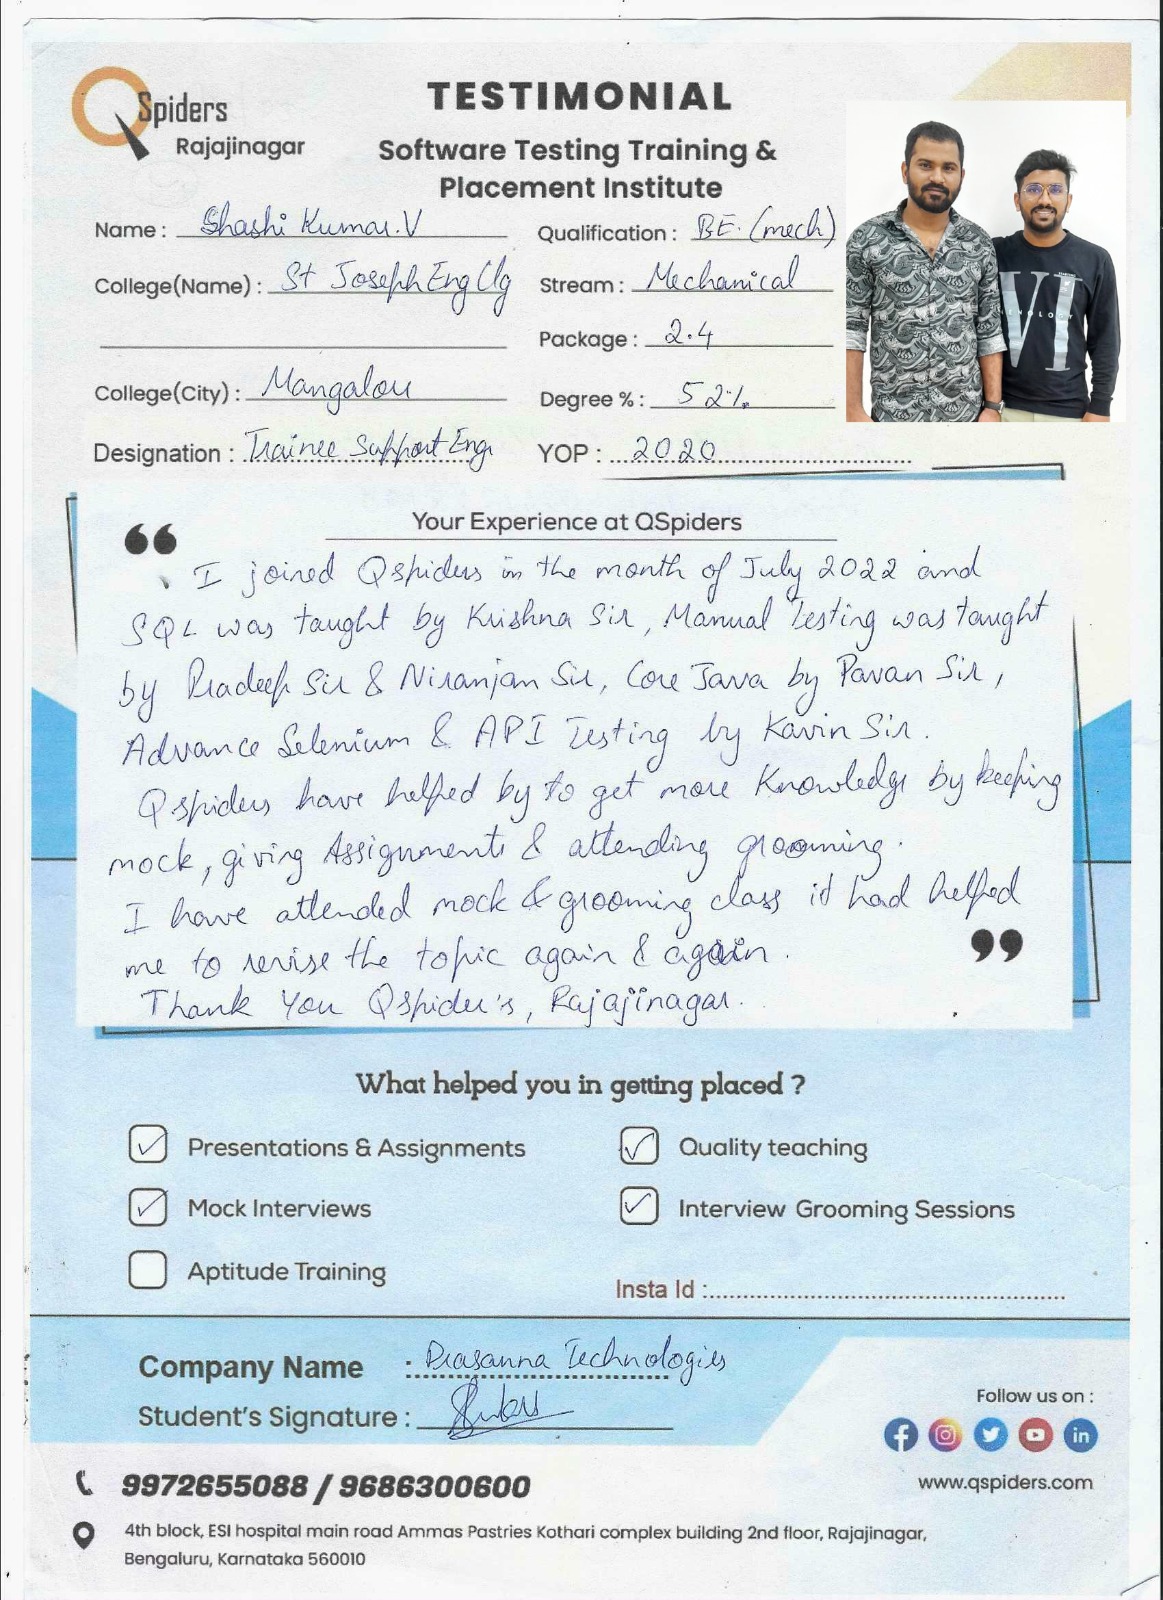 QSpiders
Rajajinagar
TESTIMONIAL
Software Testing Training &
Placement Institute
Name : Shashi Kumar.V
Qualification : BE. (mech)
College(Name) : St Joseph Eng Clg
Stream : Mechanical
Package : 2.4
College(City) : Mangalou
Degree % : 52%
Designation : Trainee Support Eng
YOP : 2020
Your Experience at QSpiders
I joined Qspiders in the month of July 2022 and
SQL was taught by Krishna Sir, Manual Testing was taught
by Pradeep Sir & Niranjan Sir, Core Java by Pavan Sir,
Advance Selenium & API Testing by Kavin Sir.
Qspiders have helped by to get more Knowledge by keeping
mock, giving Assignments & attending grooming.
I have attended mock & grooming class it had helped
me to revise the topic again & again.
Thank You Qspider's, Rajajinagar.
What helped you in getting placed ?
Presentations & Assignments
Quality teaching
Mock Interviews
Interview Grooming Sessions
Aptitude Training
Insta Id :
Company Name : Prasanna Technologies
Student's Signature :
Follow us on :
9972655088 / 9686300600
www.qspiders.com
4th block, ESI hospital main road Ammas Pastries Kothari complex building 2nd floor, Rajajinagar,
Bengaluru, Karnataka 560010